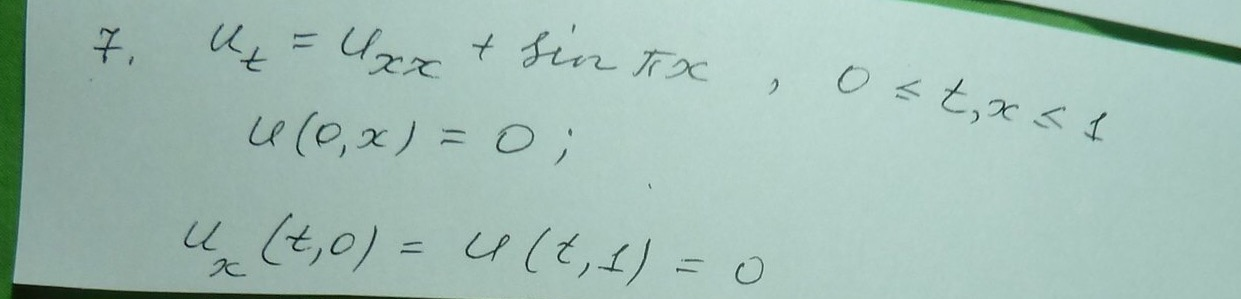 7. u_t = u_xx + sin πx, 0 ≤ t, x ≤ 1
u(0,x) = 0;
u_x(t,0) = u(t,1) = 0